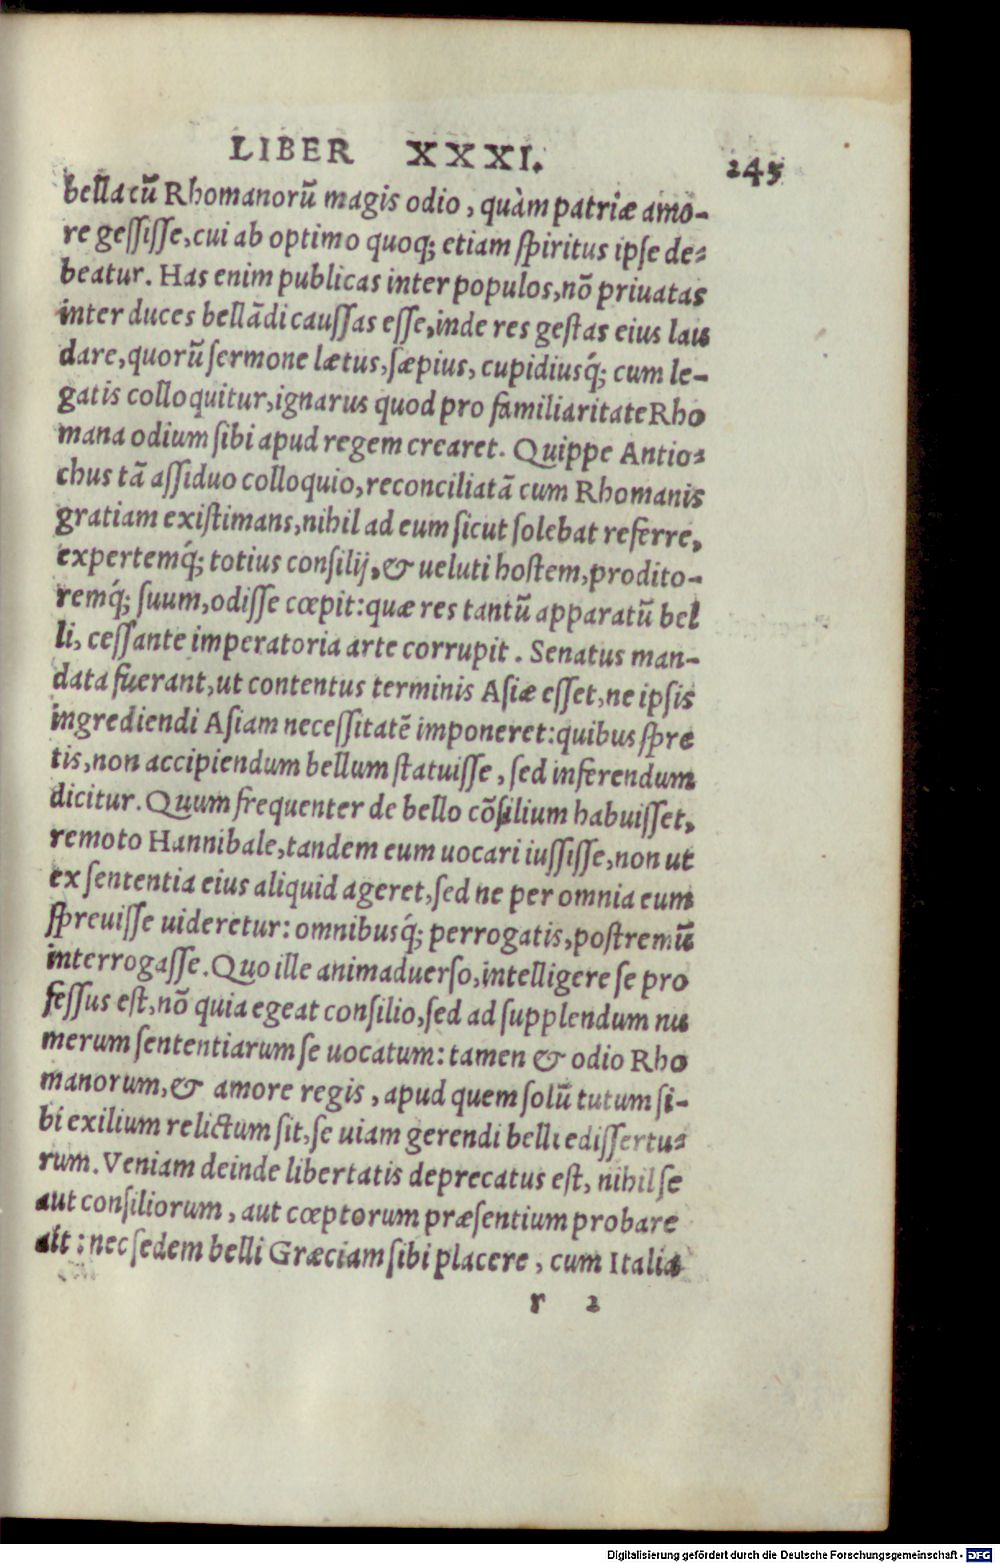 LIBER XXXI. 245
bellacũ Rhomanorũ magis odio, quàm patriæ amo-
re geſſiſſe, cui ab optimo quoq; etiam ſpiritus ipſe de-
beatur. Has enim publicas inter populos, nõ priuatas
inter duces bellãdi cauſſas eſſe, inde res geſtas eius lau
dare, quorũ ſermone lætus, ſæpius, cupidiusq́; cum le-
gatis colloquitur, ignarus quod pro familiaritate Rho
mana odium ſibi apud regem crearet. Quippe Antio-
chus tã aſſiduo colloquio, reconciliatã cum Rhomanis
gratiam exiſtimans, nihil ad eum ſicut ſolebat referre,
expertemq́; totius conſilij, & ueluti hoſtem, prodito-
remq́; ſuum, odiſſe cœpit: quæ res tantũ apparatũ bel
li, ceſſante imperatoria arte corrupit. Senatus man-
data fuerant, ut contentus terminis Aſiæ eſſet, ne ipſis
ingrediendi Aſiam neceſſitatẽ imponeret: quibus ſpre
tis, non accipiendum bellum ſtatuiſſe, ſed inferendum
dicitur. Quum frequenter de bello cõſilium habuiſſet,
remoto Hannibale, tandem eum uocari iuſſiſſe, non ut
ex ſententia eius aliquid ageret, ſed ne per omnia eum
ſpreuiſſe uideretur: omnibusq́; perrogatis, poſtremũ
interrogaſſe. Quo ille animaduerſo, intelligere ſe pro
feſſus eſt, nõ quia egeat conſilio, ſed ad ſupplendum nu
merum ſententiarum ſe uocatum: tamen & odio Rho
manorum, & amore regis, apud quem ſolũ tutum ſi-
bi exilium relictum ſit, ſe uiam gerendi belli ediſſertu-
rum. Veniam deinde libertatis deprecatus eſt, nihil ſe
aut conſiliorum, aut cœptorum præſentium probare
ait: nec ſedem belli Græciam ſibi placere, cum Italia
r 2
Digitalisierung gefördert durch die Deutsche Forschungsgemeinschaft - DFG